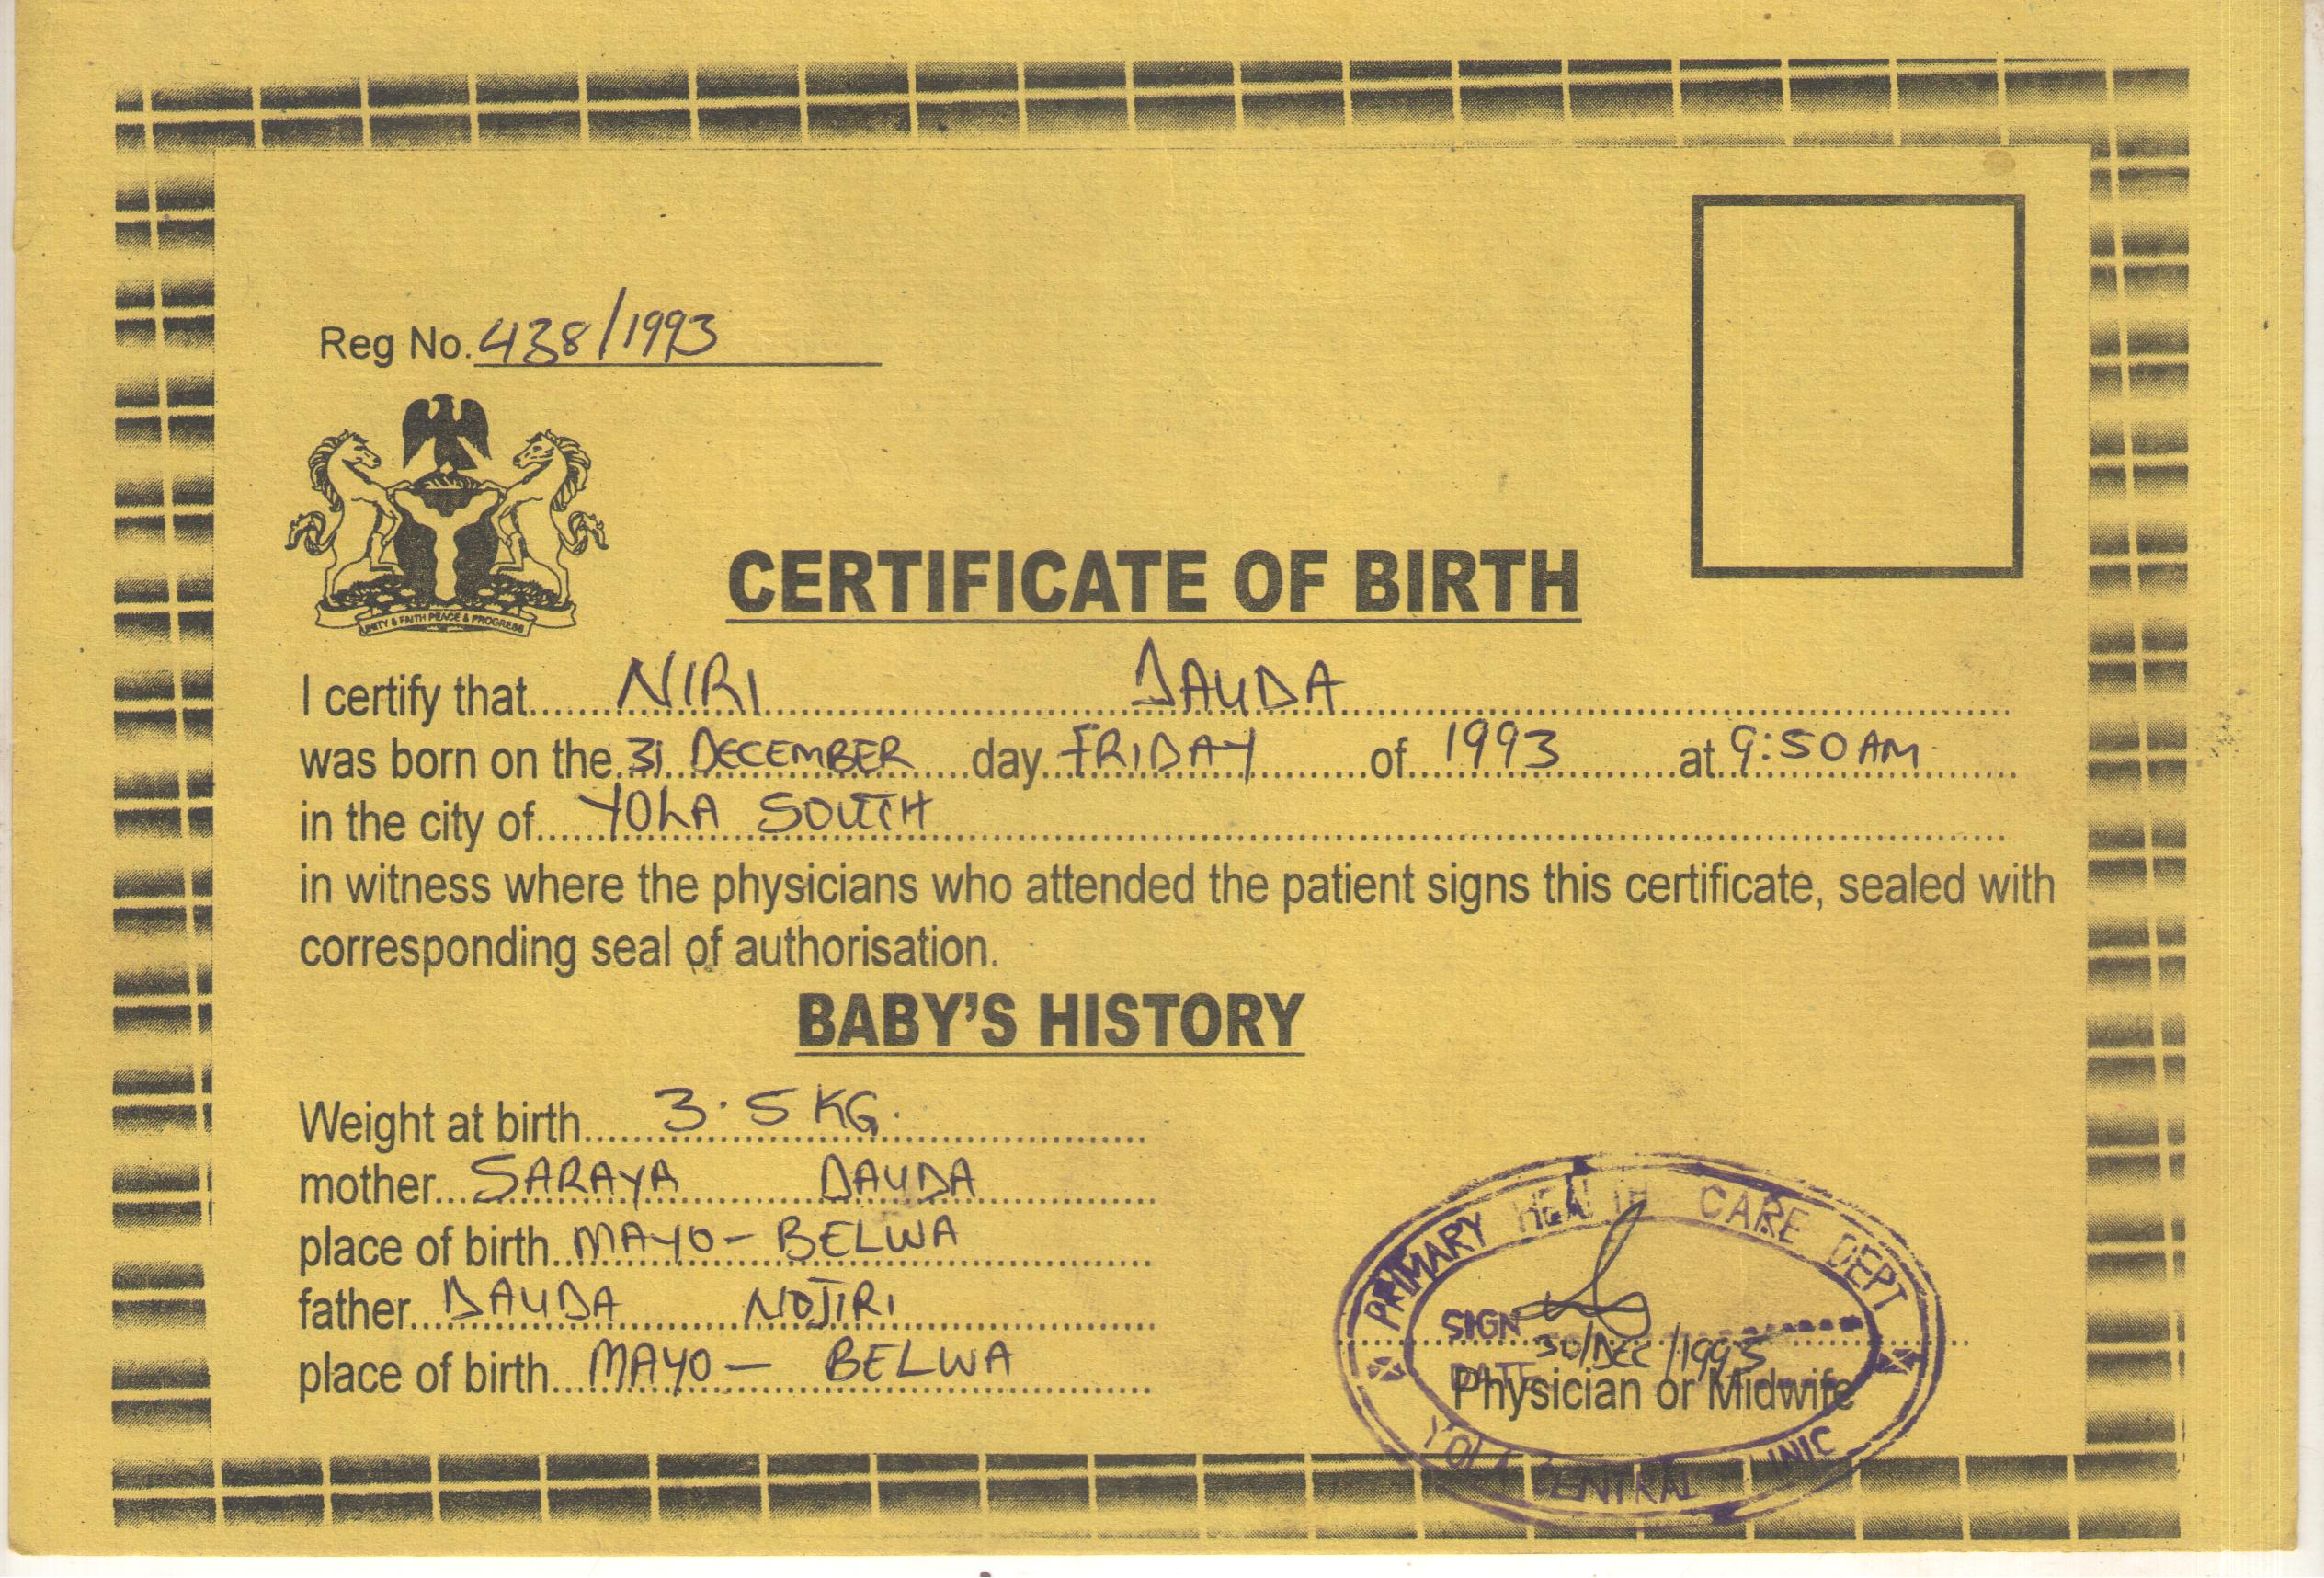 Reg No. 438/1993
UNITY & FAITH PEACE & PROGRESS
CERTIFICATE OF BIRTH
I certify that NIRI DAUDA
was born on the 31 DECEMBER day FRIDAY of 1993 at 9:50AM
in the city of YOLA SOUTH
in witness where the physicians who attended the patient signs this certificate, sealed with
corresponding seal of authorisation.
BABY'S HISTORY
Weight at birth 3.5KG.
mother SARAYA DAUDA
place of birth MAYO-BELWA
father DAUDA NOJIRI
place of birth MAYO-BELWA
PRIMARY HEALTH CARE DEPT
SIGN
DATE 30/DEC/1993
Physician or Midwife
YOLA CENTRAL CLINIC